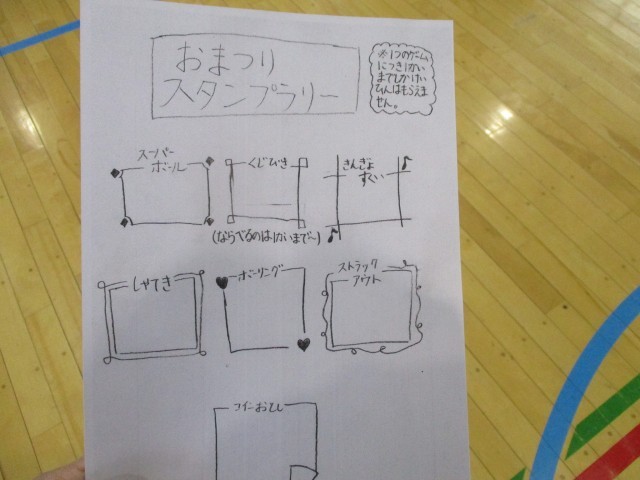 おまつり
スタンプラリー
※1つのゲーム
につき1かい
までしかけい
ひんはもらえま
せん。
スーパー
ボール
くじびき
きんぎょ
すくい
(ならべるのは1かいまで〜)
しゃてき
ボーリング
ストラック
アウト
コインおとし